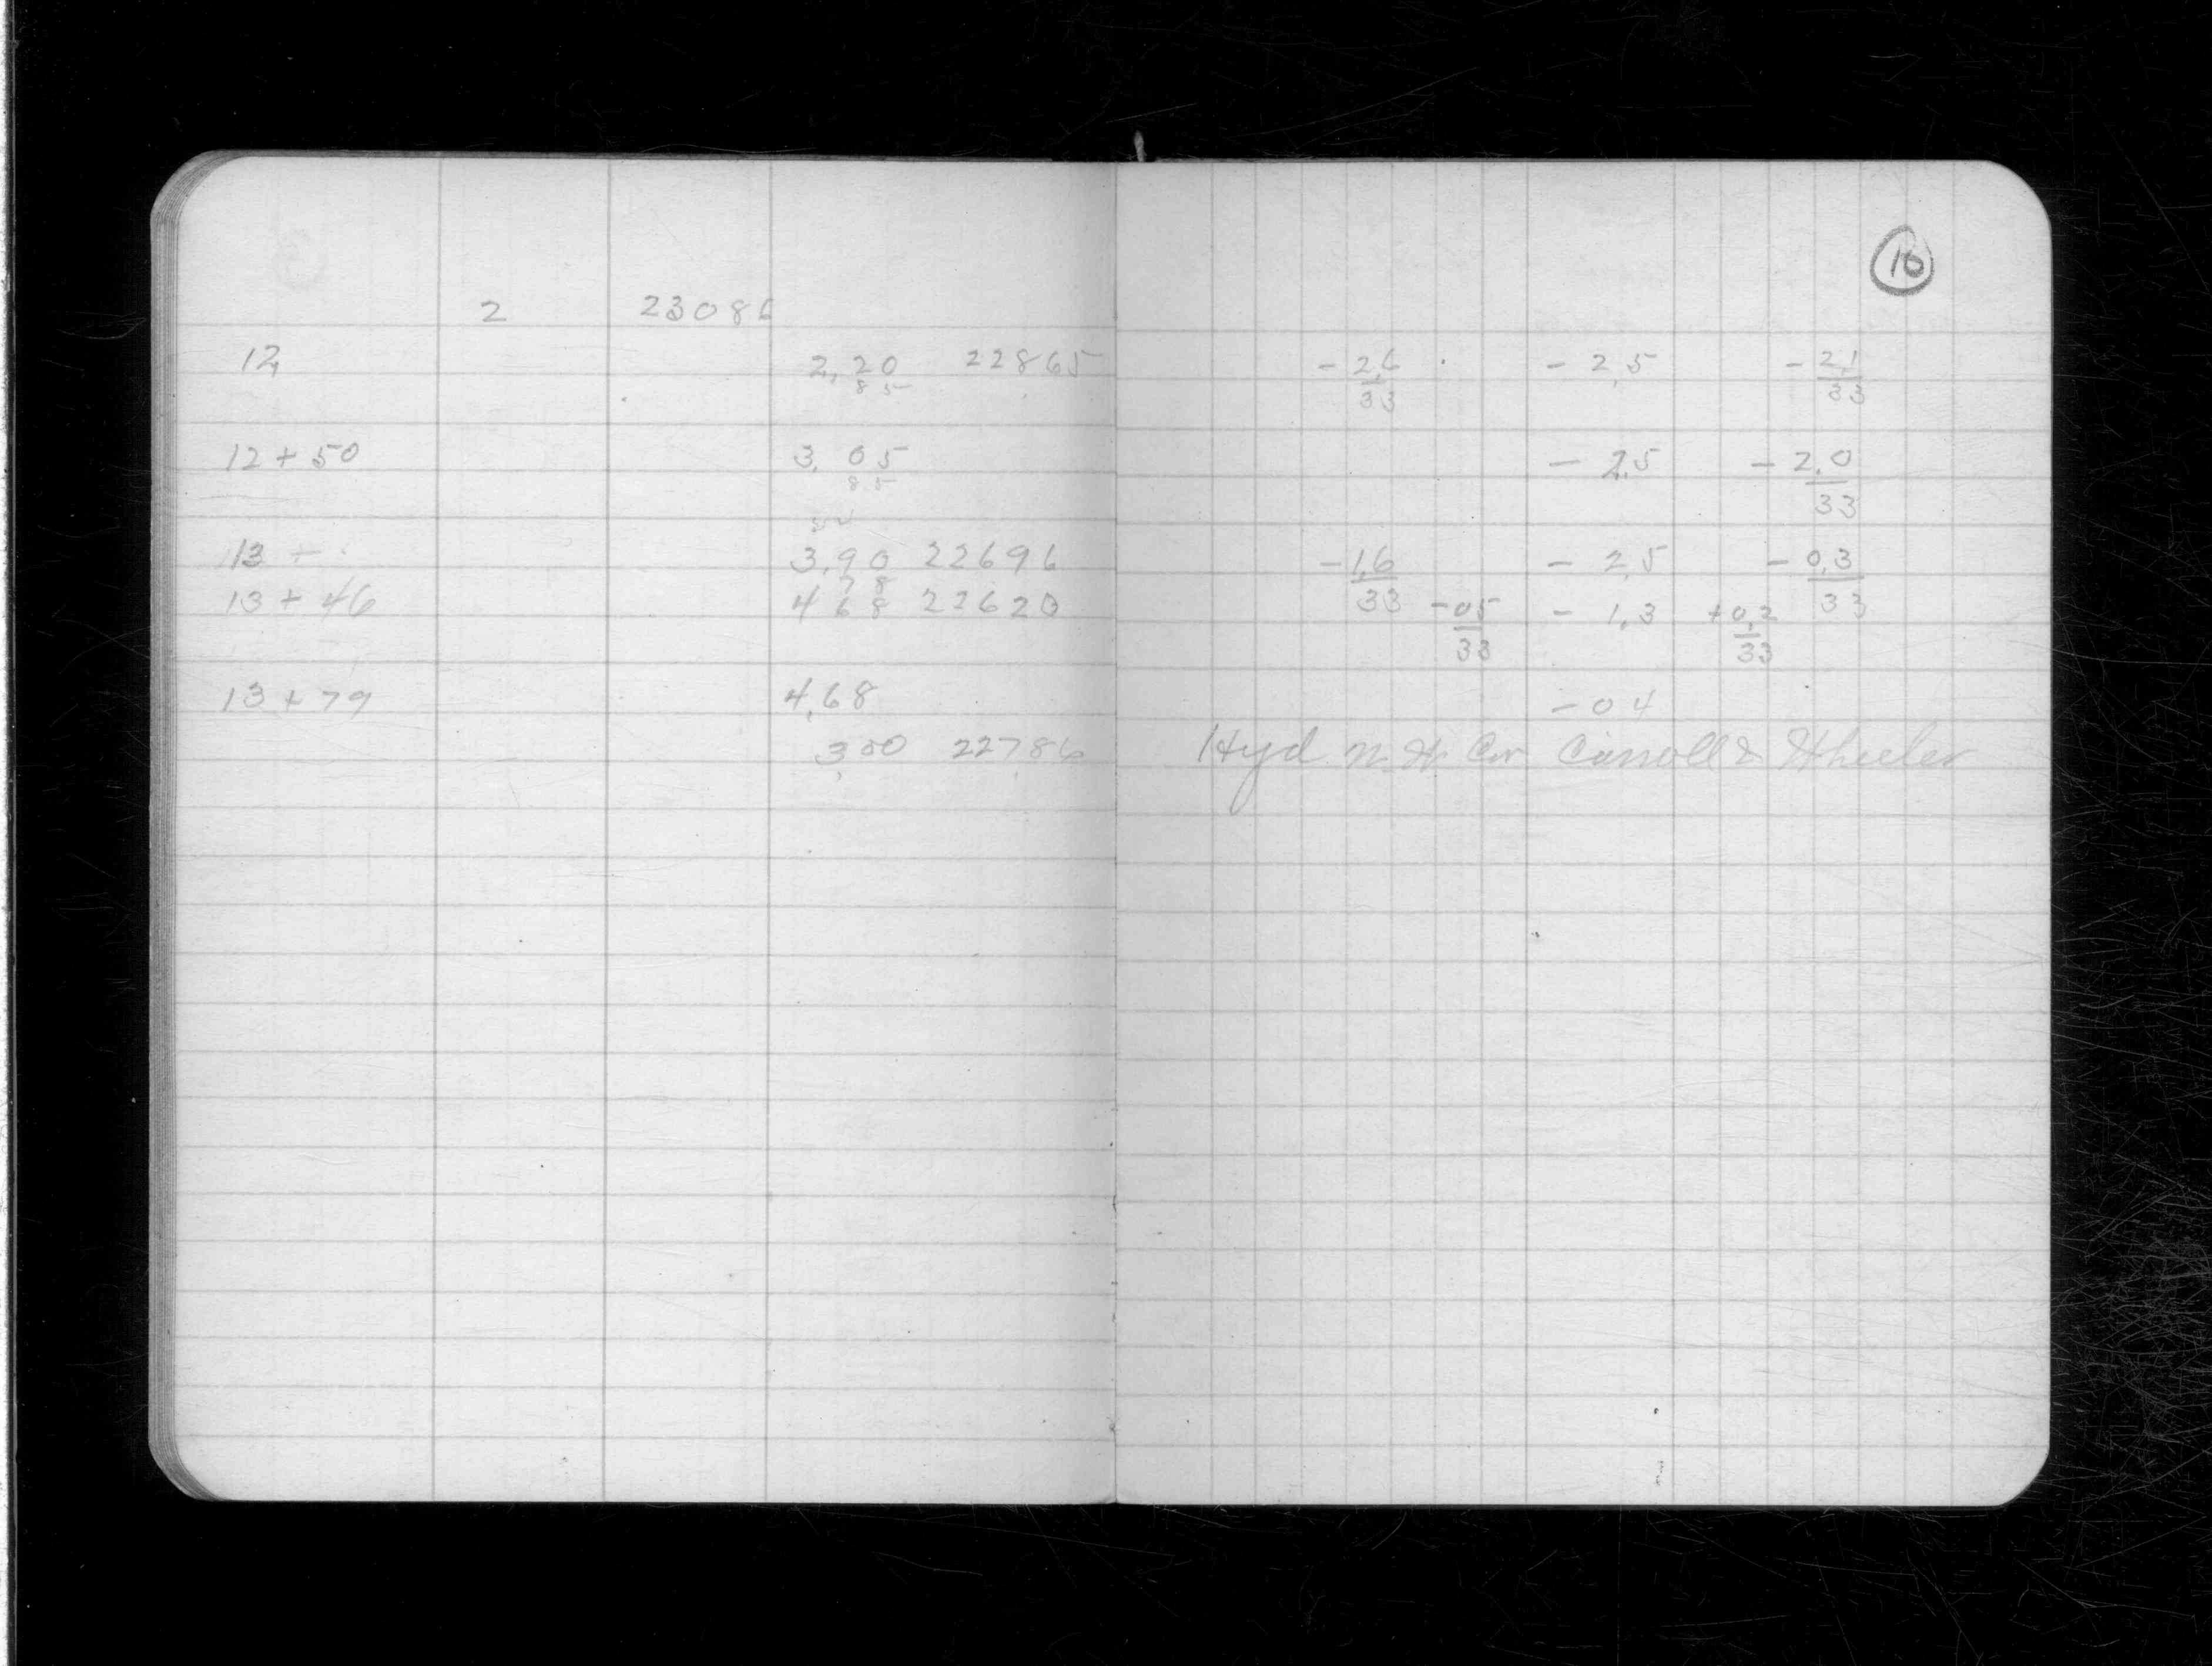 10
2 23086
12 2,20 22865 - 2,6 - 2,5 - 2,1
85 33 33
12 + 50 3,05 - 2,5 - 2,0
85 33
13 + 3,90 22696 - 1,6 - 2,5 - 0,3
78 33 33
13 + 46 4 68 22620 - 05 - 1,3 + 0,2
33 33
13 + 79 4,68 - 04
3,00 22786 Hyd N. W. Cor Carroll & Wheeler